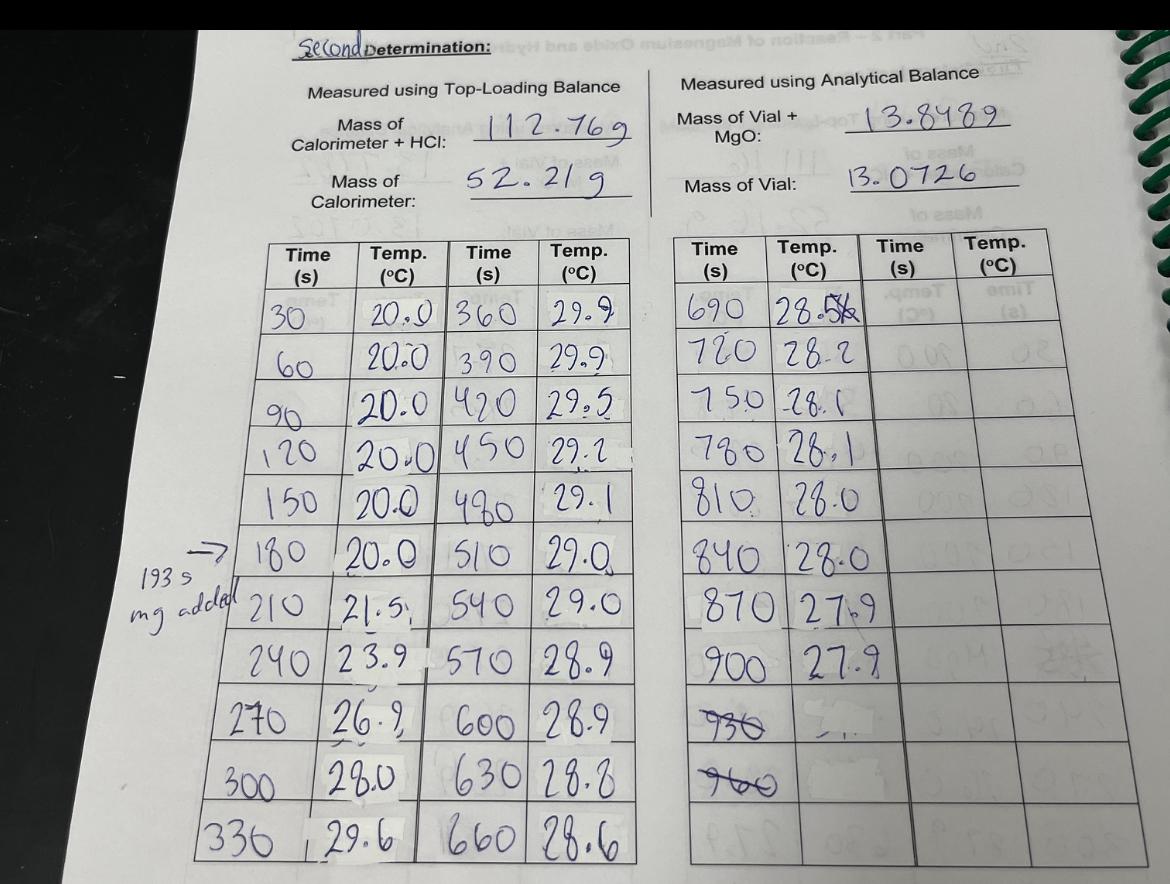 Second Determination:
Measured using Top-Loading Balance
Mass of Calorimeter + HCl: 112.76g
Mass of Calorimeter: 52.21g
Measured using Analytical Balance
Mass of Vial + MgO: 13.8489
Mass of Vial: 13.0726
Time (s) Temp. (°C) Time (s) Temp. (°C)
30 20.0 360 29.9
60 20.0 390 29.9
90 20.0 420 29.5
120 20.0 450 29.2
150 20.0 480 29.1
180 20.0 510 29.0
→
193 s
mg added
210 21.5 540 29.0
240 23.9 570 28.9
270 26.9 600 28.9
300 28.0 630 28.8
330 29.6 660 28.6
Time (s) Temp. (°C) Time (s) Temp. (°C)
690 28.5
720 28.2
750 28.1
780 28.1
810 28.0
840 28.0
870 27.9
900 27.9
930
960